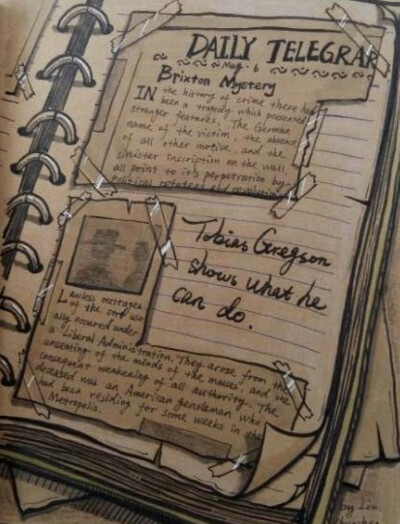 DAILY TELEGRAM
Mar. 6
Brixton Mystery
IN the history of crime there has
been a tragedy which presented
stranger features. The German
name of the victim, the absence
of all other motive, and the
sinister inscription on the wall,
all point to its perpetration by
political refugees and
Tobias Gregson
shows what he
can do.
Lawless outrages
of the sort usu
ally occured under
a Liberal Administration. They arose from the
unsettling of the minds of the masses and the
consequent weakening of all authority. The
deceased was an American gentleman who
had been residing for some weeks in the
Metropolis.
by Liu